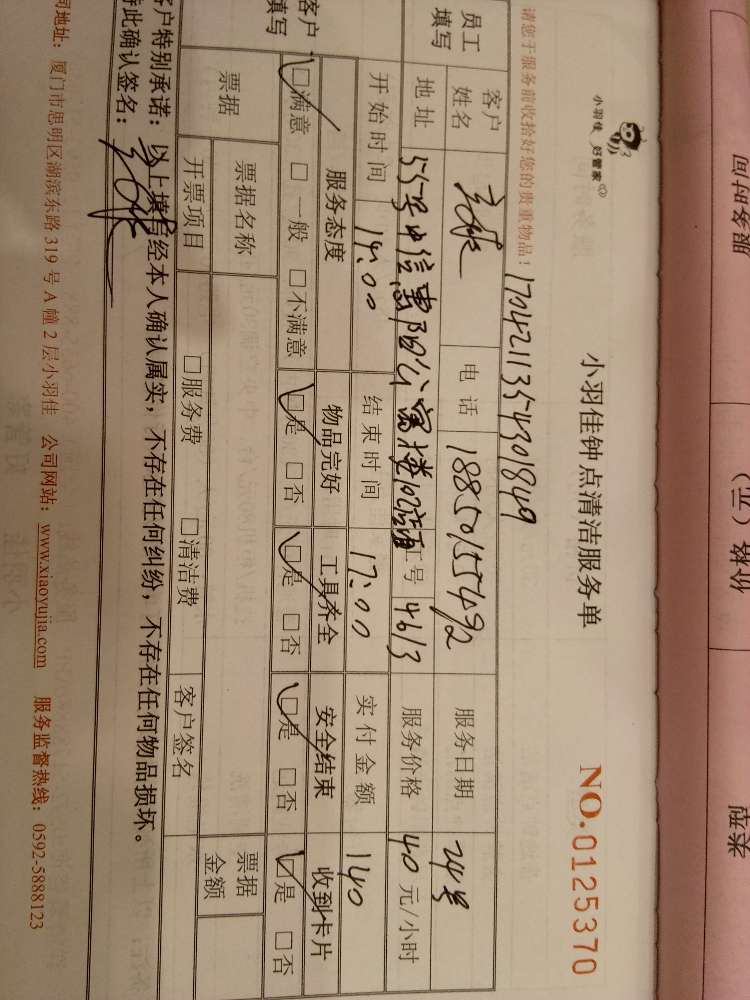 服务时间
价格（元）
小羽佳 好管家
小羽佳钟点清洁服务单
NO.0125370
请您于服务前收拾好您的贵重物品！ 1704211354301849
员工填写 客户姓名 电话 18850155492 服务日期 24号
地址 55号中信惠阳公寓 工号 4613 服务价格 40 元/小时
开始时间 14:00 结束时间 17:00 实付金额 140
客户填写 服务态度 物品完好 工具齐全 安全结束 收到卡片
□满意 □一般 □不满意 □是 □否 □是 □否 □是 □否 □是 □否
票据 票据名称 票据金额
开票项目 □服务费 □清洁费 客户签名
客户特别承诺：以上填写经本人确认属实，不存在任何纠纷，不存在任何物品损坏。
特此确认签名：
司地址：厦门市思明区湖滨东路 319 号 A 幢 2 层小羽佳 公司网站：www.xiaoyujia.com 服务监督热线：0592-5888123